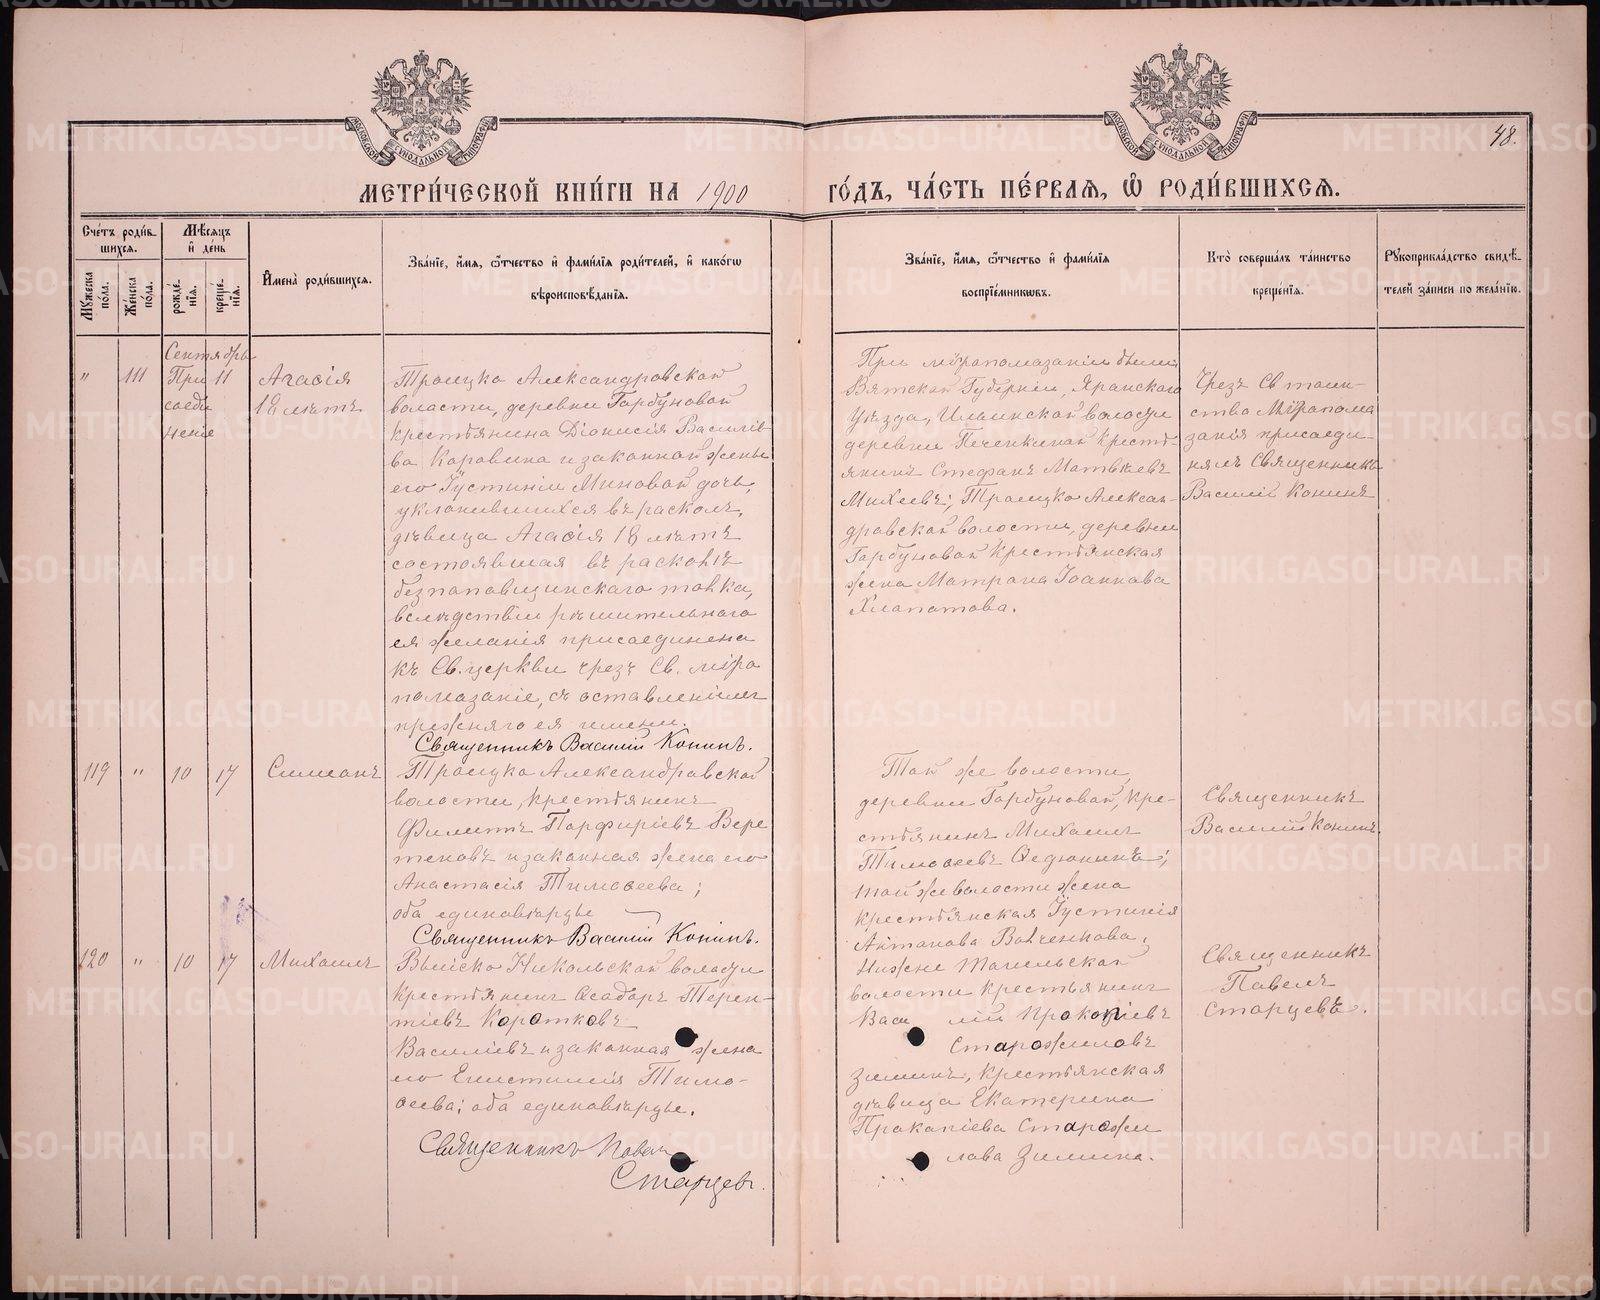 48.
МЕТРИ́ЧЕСКОЙ КНИ́ГИ НА 1900
ГО́ДЪ, ЧА́СТЬ ПЕ́РВАЯ, Ѿ РОДИ́ВШИХСЯ.
Сче́тъ роди́в-
шихся.
Мꙋ́жеска
по́ла.
Же́нска
по́ла.
Мѣ́сяцъ
и҆ де́нь
рожде́-
нїѧ.
креще́-
нїѧ.
И҆мена̀ роди́вшихся.
Зва́нїе, и҆́мѧ, ѻ҆́тчество и҆ фами́лїѧ роди́телей, и҆ како́гѡ
вѣроисповѣ́данїѧ.
Зва́нїе, и҆́мѧ, ѻ҆́тчество и҆ фами́лїѧ
воспрїе́мникѡвъ.
Кто̀ соверша́лъ та́инство
креще́нїѧ.
Рꙋкоприкла́дство свидѣ́-
телей за́писи по жела́нїю.
Сентябрь
" 111 При 11
соеди
неніе
Агасія
18 лѣтъ
Троицко Александровской
волости, деревни Горбуновой
крестьянина Діонисія Василіе-
ва Коровина и законной жены
его Іустиніи Миновой дочь,
уклонившихся въ расколъ,
дѣвица Агасія 18 лѣтъ
состоявшая въ расколѣ
безпоповщинскаго толка,
вслѣдствіи рѣшительнаго
ея желанія присоединена
къ Св. церкви чрезъ Св. мѵро
помазаніе, съ оставленіемъ
прежняго ея имени.
Священникъ Василій Конинъ.
При мѵропомазаніи были
Вятской Губерніи, Яранскаго
Уѣзда, Ильинской волости
деревни Печенкиной крестья-
янинъ Стефанъ Матвѣевъ
Михеевъ; Троицко Алексан-
дровской волости, деревни
Горбуновой крестьянская
жена Матрона Іоаннова
Хлопотова.
Чрезъ Св таин-
ство Мѵропома
занія присоеди-
нялъ Священникъ
Василій Конинъ
119 " 10 17 Симеонъ
Троицко Александровской
волости, крестьянинъ
Филиппъ Порфиріевъ Вере
теновъ и законная жена его
Анастасія Тимоѳеева;
оба единовѣрцы
Священникъ Василій Конинъ.
Той же волости,
деревни Горбуновой, кре-
стьянинъ Михаилъ
Тимоѳеевъ Ѳедюнинъ;
той же волости жена
крестьянская Іустинія
Антонова Волченкова,
Священникъ
Василій Конинъ.
120 " 10 17 Михаилъ
Выйско Никольской волости
крестьянинъ Ѳеодоръ Терен-
тіевъ Коротковъ
Василіевъ и законная жена
его Епистимія Тимо-
ѳеева; оба единовѣрцы.
Священникъ Павелъ
Старцевъ.
Нижне Тагильской
волости крестьянинъ
Васи лій Прокопіевъ
Старожиловъ
Зиминъ, крестьянская
дѣвица Екатерина
Прокопіева Старожи
лова Зимина.
Священникъ
Павелъ
Старцевъ.
METRIKI.GASO-URAL.RU